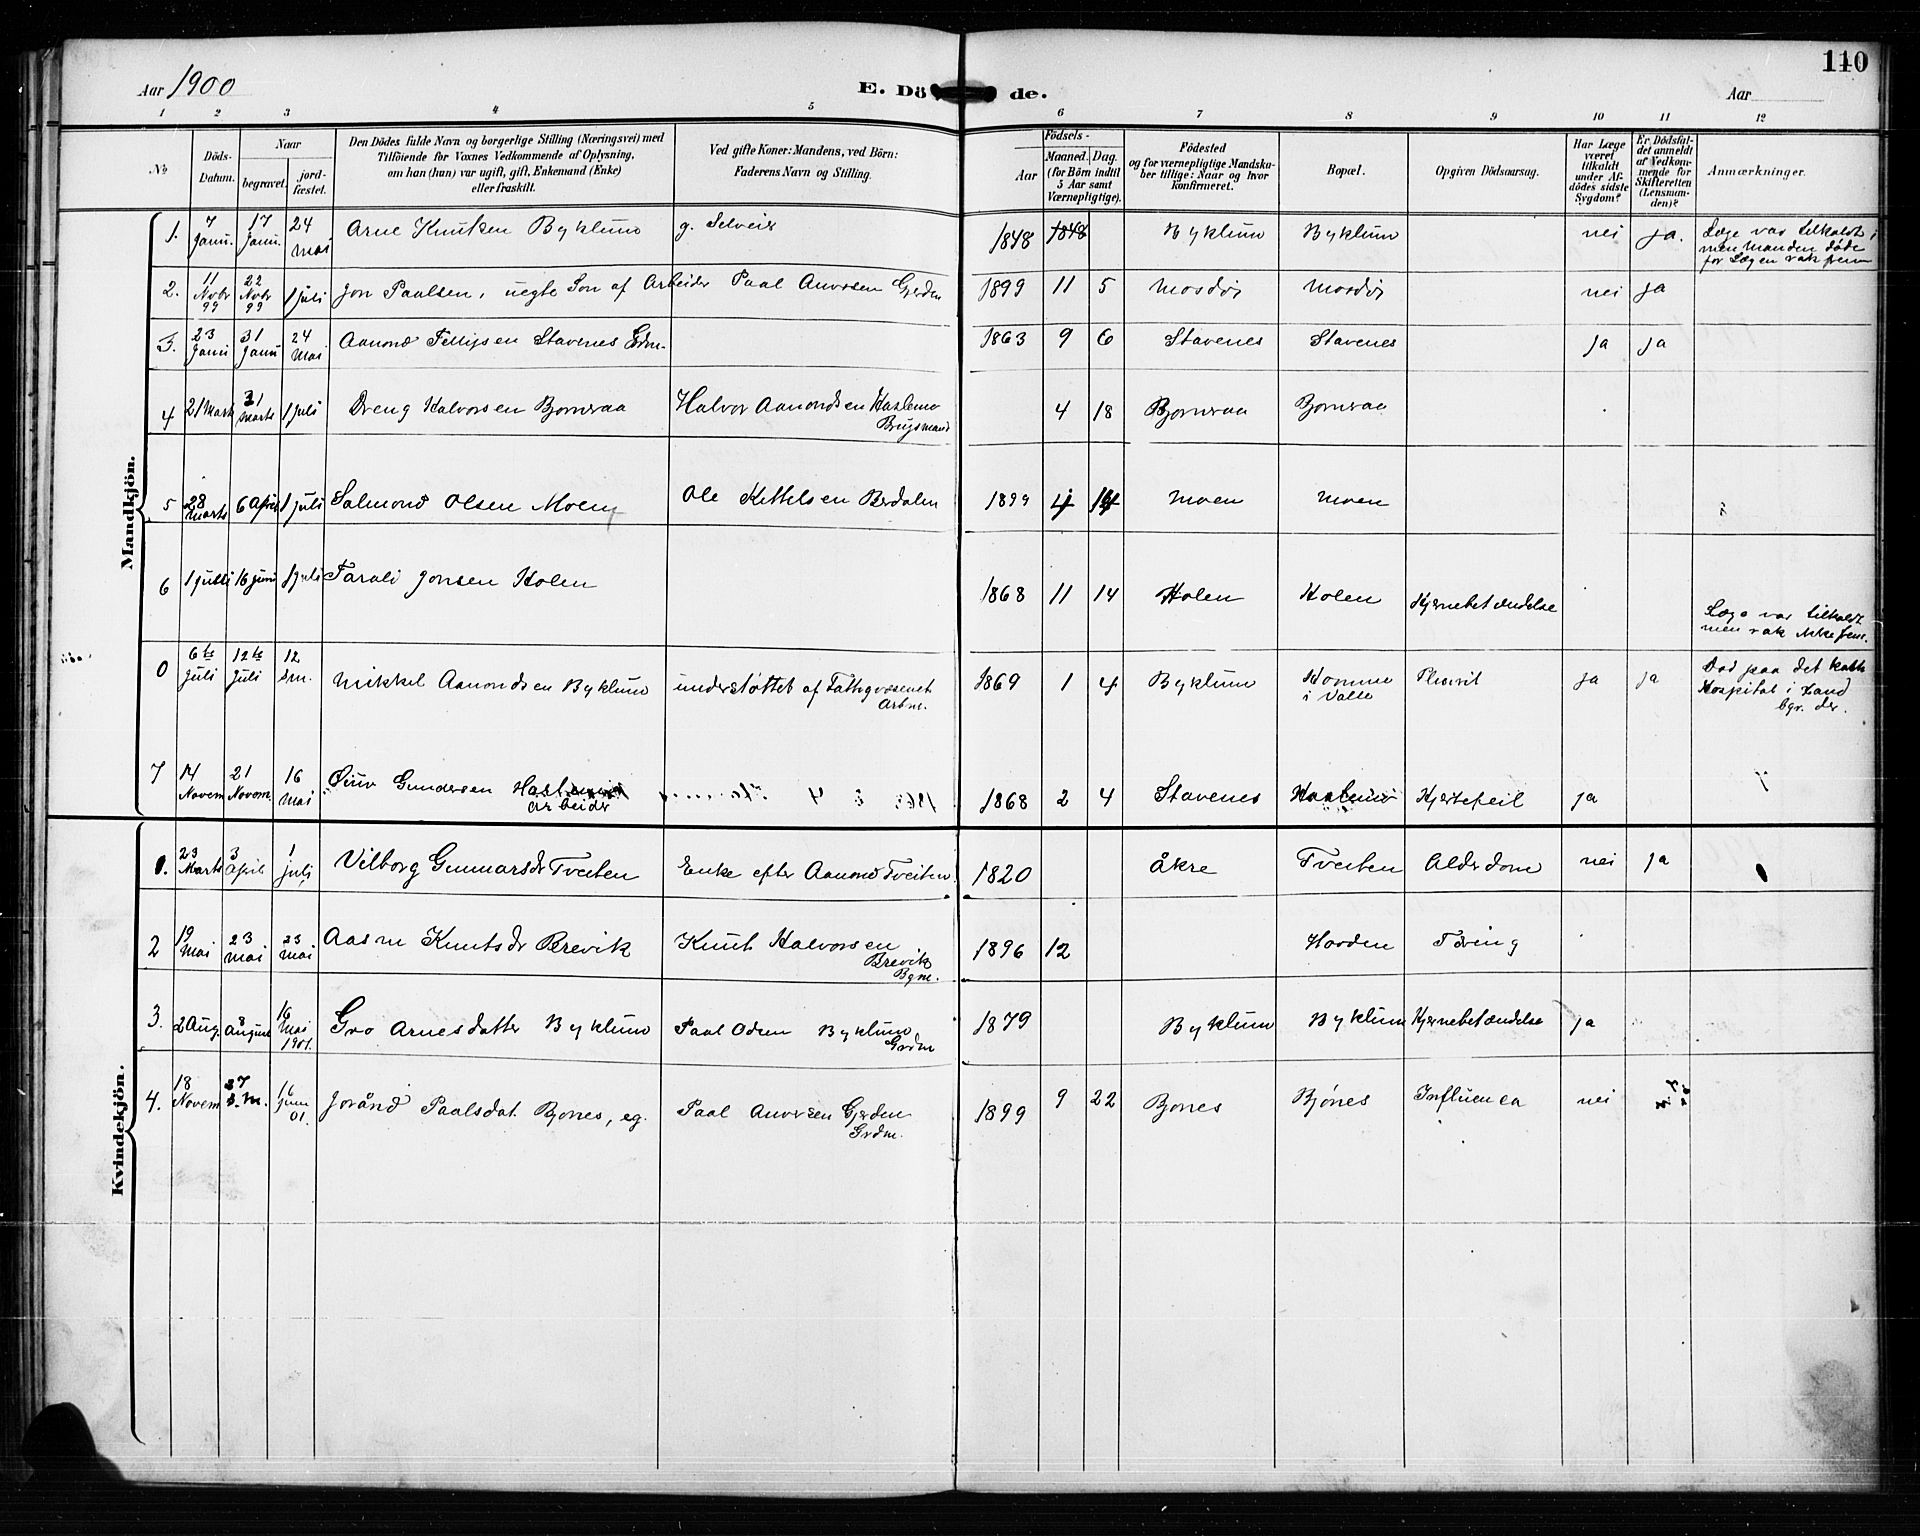 110
Aar 1900
E. Dö de.
Aar
1 2 3 4 5 6 7 8 9 10 11 12
No
Döds-Datum.
Naar
begravet.
jord-fæstet.
Den Dödes fulde Navn og borgerlige Stilling (Næringsvei) med
Tilföiende for Voxnes Vedkommende af Oplysning,
om han (hun) var ugift, gift, Enkemand (Enke)
eller fraskilt.
Ved gifte Koner: Mandens, ved Börn:
Faderens Navn og Stilling.
Födsels-
Aar
Maaned. Dag.
(for Börn indtil
5 Aar samt
Værnepligtige).
Födested
og for værnepligtige Mandska-
ber tillige: Naar og hvor
Konfirmeret.
Bopæl.
Opgiven Dödsaarsag.
Har Læge
været
tilkaldt
under Af-
dödes sidste
Sygdom?
Er Dödsfal-
det anmeldt
af Vedkom-
mende for
Skifteretten
(Lensman-
den)?
Anmærkninger.
Mandkjön.
1. 7 Janu. 17 Janu. 24 mai Arne Knutsen Byklum g. Selveier 1848 1848 Byklum Byklum nei ja. Læge var tilkaldt,
men Manden døde
før Lægen rak frem
2. 11 Novbr 99 22 Novbr 99 1 juli Jon Paalsen, uegte Søn af Arbeider Paal Anversen Gjerden 1899 11 5 Mosdøi Mosdøi nei ja
3. 23 Janu 31 Janu 24 Mai Aanond Fellipsen Stavenes Grdm. 1863 9 6 Stavenes Stavenes ja ja
4 21 Mart 31 Marts 1 juli Dreng Halvorsen Bjornraa Halvor Aanondsen Haslemo
Brugsmand 4 18 Bjornraa Bjornraa
5 28 Marts 6 April 1 juli Salmond Olsen Moen Ole Kittelsen Berdalen 1899 4 14 Moen Moen
6 1 16 juni 1 juli Tarald Jonsen Holen 1868 11 14 Holen Holen Hjernebetændelse Læge var tilkaldt
men rak ikke frem.
0 6te Juli 12te Juli 12 s.m. Mikkel Aanondsen Byklum understøttet af Fattigvæsenet
Arbm. 1869 1 4 Byklum Homme
i Valle Pleurit ja ja Død paa det kath.
Hospital i Xand
bgr. der.
7 14 Novem 21 Novem. 16 mai Gundersen
arbeider 1868 2 4 Stavenes Haslemo Hjertefeil ja
Kvindekjön.
1. 23 Marts 3 April 1 juli Vilborg Gunnarsdr Tveiten Enke efter Aanond Tveiten. 1820 Åkre Tveiten Alderdom nei ja
2 19 Mai 23 mai 23 mai Knutsdr Brevik Knut Halvorsen
Brevik
Bgm. 1896 12 Hovden Tæring
3. 2 Aug. 8 August 16 Mai 1901. Gro Arnesdatter Byklum Paal Odsen Byklum
Grdm 1879 Byklum Byklum Hjernebetændelse ja
4. 18 Novem 27 s.m. 16 Juni 01. Jorånd Paalsdat. Bjones, eg. Paal Anversen Gjerden
Grdm. 1899 9 22 Bjones Bjønes Influenca nei